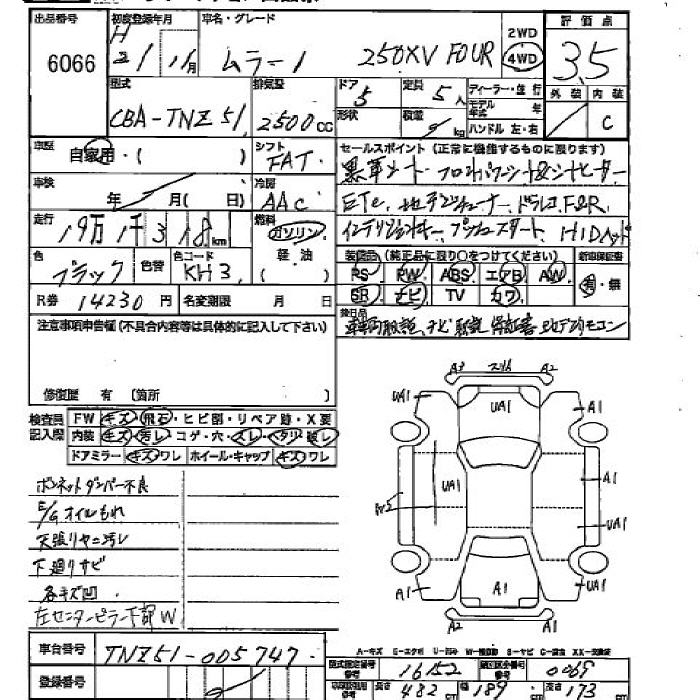 出品番号 初度登録年月 車名・グレード 評価点
6066 H 21 / 1月 ムラーノ 250XV FOUR 2WD 4WD 3.5
型式 排気量 ドア 定員 ディーラー・並行 外装 内装
CBA-TNZ51 2500cc 5 5人 モデル年式 年 C
形状 積量 kg ハンドル 左・右
車歴 自家用・( ) シフト FAT セールスポイント (正常に機能するものに限ります)
黒革シート フロントパワーシート&シートヒーター
車検 年 月( 日) 冷房 AAC ETC、地デジチューナー、ドラレコF&R
走行 19万1千318km 燃料 ガソリン 軽油 ( ) インテリジェントキー プッシュスタート HIDヘッド
色 ブラック 色替 色コード KH3 装備品 (純正品に限り○をつけてください) 新車保証書
PS PW ABS エアB AW 有・無
SR ナビ TV カワ
R券 14230円 名変期限 月 日 後日品
注意事項申告欄(不具合内容等は具体的に記入して下さい) 車両取説、ナビ取説 保証書 地デジリモコン
修復歴 有 (箇所 )
検査員記入欄 FW キズ・飛石・ヒビ割・リペア跡・X要
内装 キズ・汚レ・コゲ・穴・スレ・ヘタリ・破レ
ドアミラー キズ ワレ ホイール・キャップ キズ ワレ
A3 スリキズ A2
UA1 UA1 A1
A1
UA1
UA1
A1 A1 UA1
A2 A2
ボンネットダンパー不良
E/Gオイルもれ
天張りヤニ汚レ
下廻りサビ
各キズ凹
左センターピラー下部W
A-キズ E-エクボ U-凹み W-補修跡 S-サビ C-腐食 XX-交換済
車台番号 TNZ51-005747 型式指定番号 16152 類別区分番号 0069
登録番号 長さ 482 幅 189 高さ 173